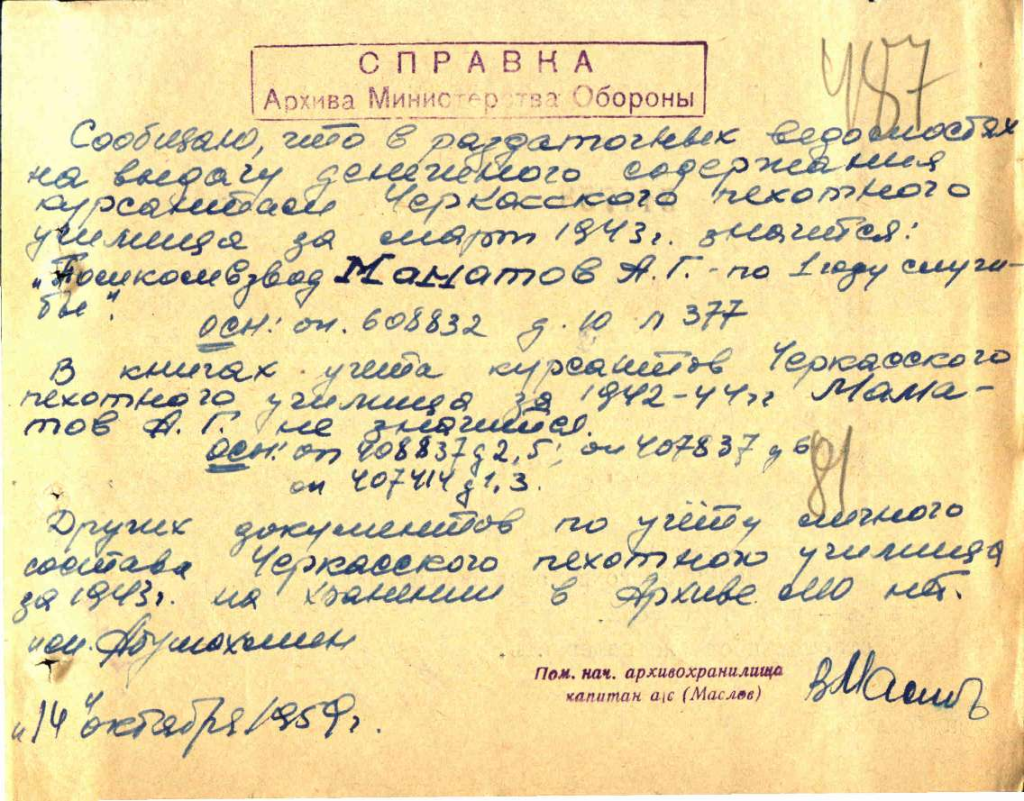 487
СПРАВКА
Архива Министерства Обороны
Сообщаю, что в раздаточных ведомостях
на выдачу денежного содержания
курсантам Черкасского пехотного
училища за март 1943г. значится:
„Помкомвзвод Маматов А.Г. - по 1 году служ-
бы".
осн: оп. 608832 д. 10 л 377
В книгах учета курсантов Черкасского
пехотного училища за 1942-44гг Мама-
тов А.Г. не значится.
осн: оп 408837 д 2,5; оп 407837 д 6
оп 407414 д 1,3.
81
Других документов по учёту личного
состава Черкасского пехотного училища
за 1943г. на хранении в Архиве МО нет.
Пом. нач. архивохранилища
капитан а/с (Маслов)
ВМаслов
„14" октября 1959г.